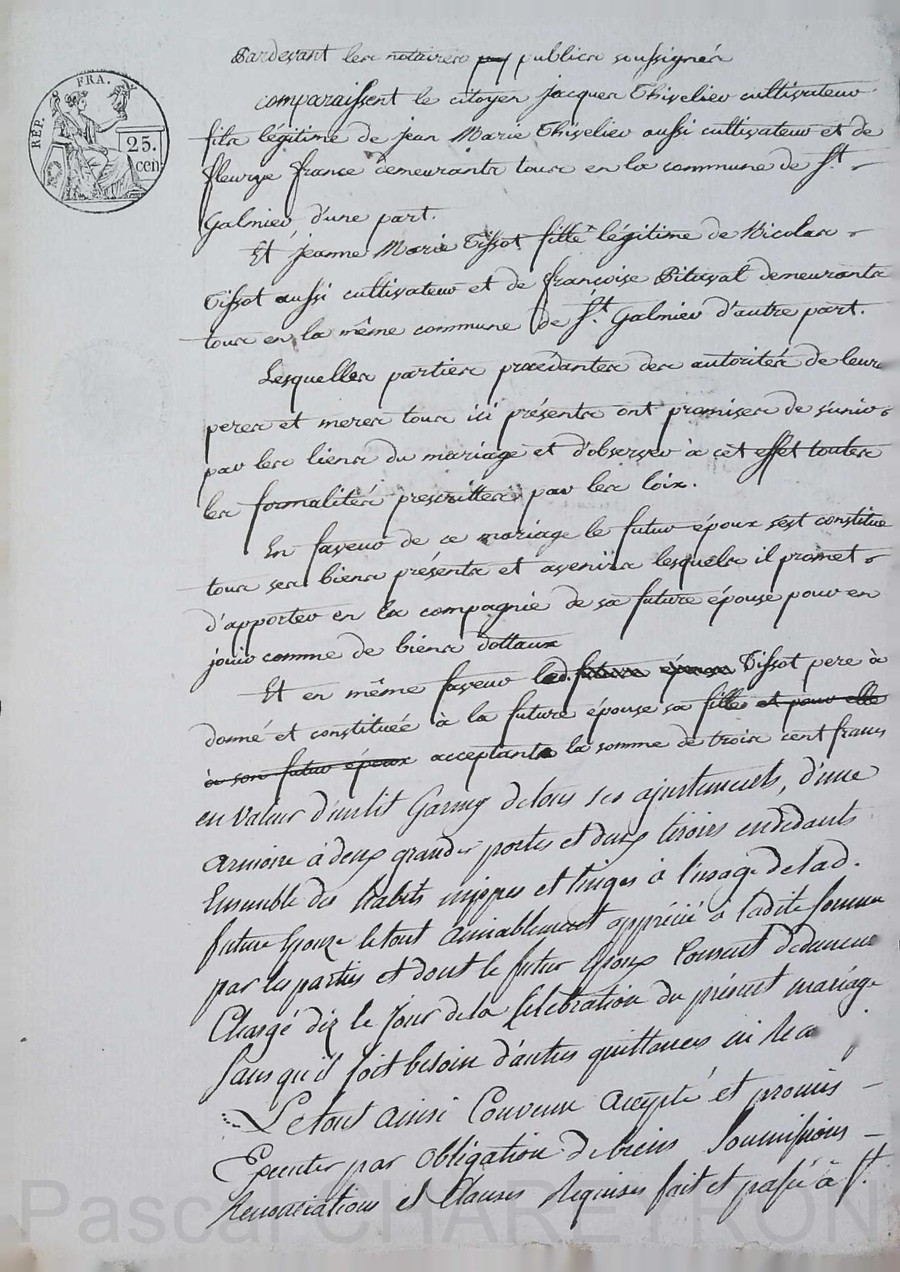 Pardevant les notaires publics soussignés
RÉP. FRA.
25.
cen
comparaissent le citoyen jacques Thivelier cultivateur
fils légitime de jean Marie Thivelier aussi cultivateur et de
fleurye france demeurants tous en la commune de St.
Galmier d'une part.
Et jeanne Marie Tissot fille légitime de Nicolas
Tissot aussi cultivateur et de françoise Pitaval demeurants
tous en la même commune de St. Galmier d'autre part.
Lesquelles parties procédantes des autorités de leurs
peres et meres tous ici présents ont promises de s'unir
par les liens du mariage et d'observer à cet effet toutes
les formalités prescrittes par les loix.
En faveur de ce mariage le futur époux s'est constitué
tous ses biens présents et avenirs lesquels il promet
d'apporter en la compagnie de sa future épouse pour en
jouir comme de biens dottaux
Et en même faveur led. future époux Tissot pere à
donné et constituée à la future épouse sa fille et pour elle
à son futur époux acceptante la somme de trois cent francs
en valeur d'un lit Garny de tous ses ajustements, d'une
armoire à deux grandes portes et deux tiroirs en dedants
Ensemble des habits nippes et linges à l'usage de lad.
future Epouze le tout amiablement apprécié à ladite somme
par les parties et dont le futur Epoux Consent d'demeurer
Chargé dez le Jour de la Célébration du présent mariage
sans qu'il soit besoin d'autres quittances ni
Le tout ainsi Convenu accepté et promis
Executer par obligation de biens soummissions
Renonciations et Clauses Requises fait et passé à St.
Pascal CHAREYRON